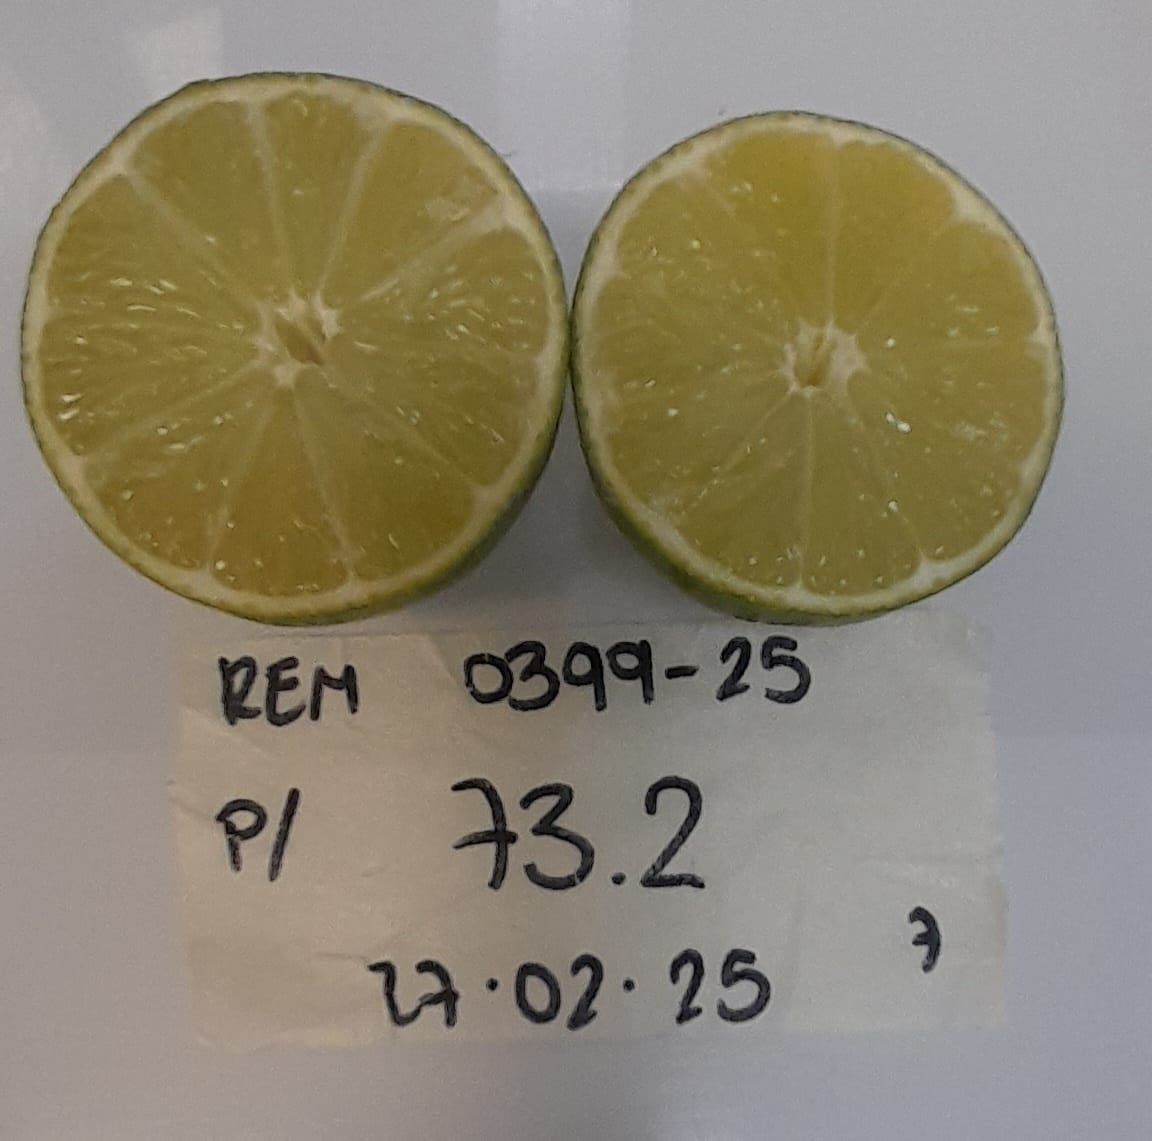 REM 0399-25
P/ 73.2
7
27.02.25